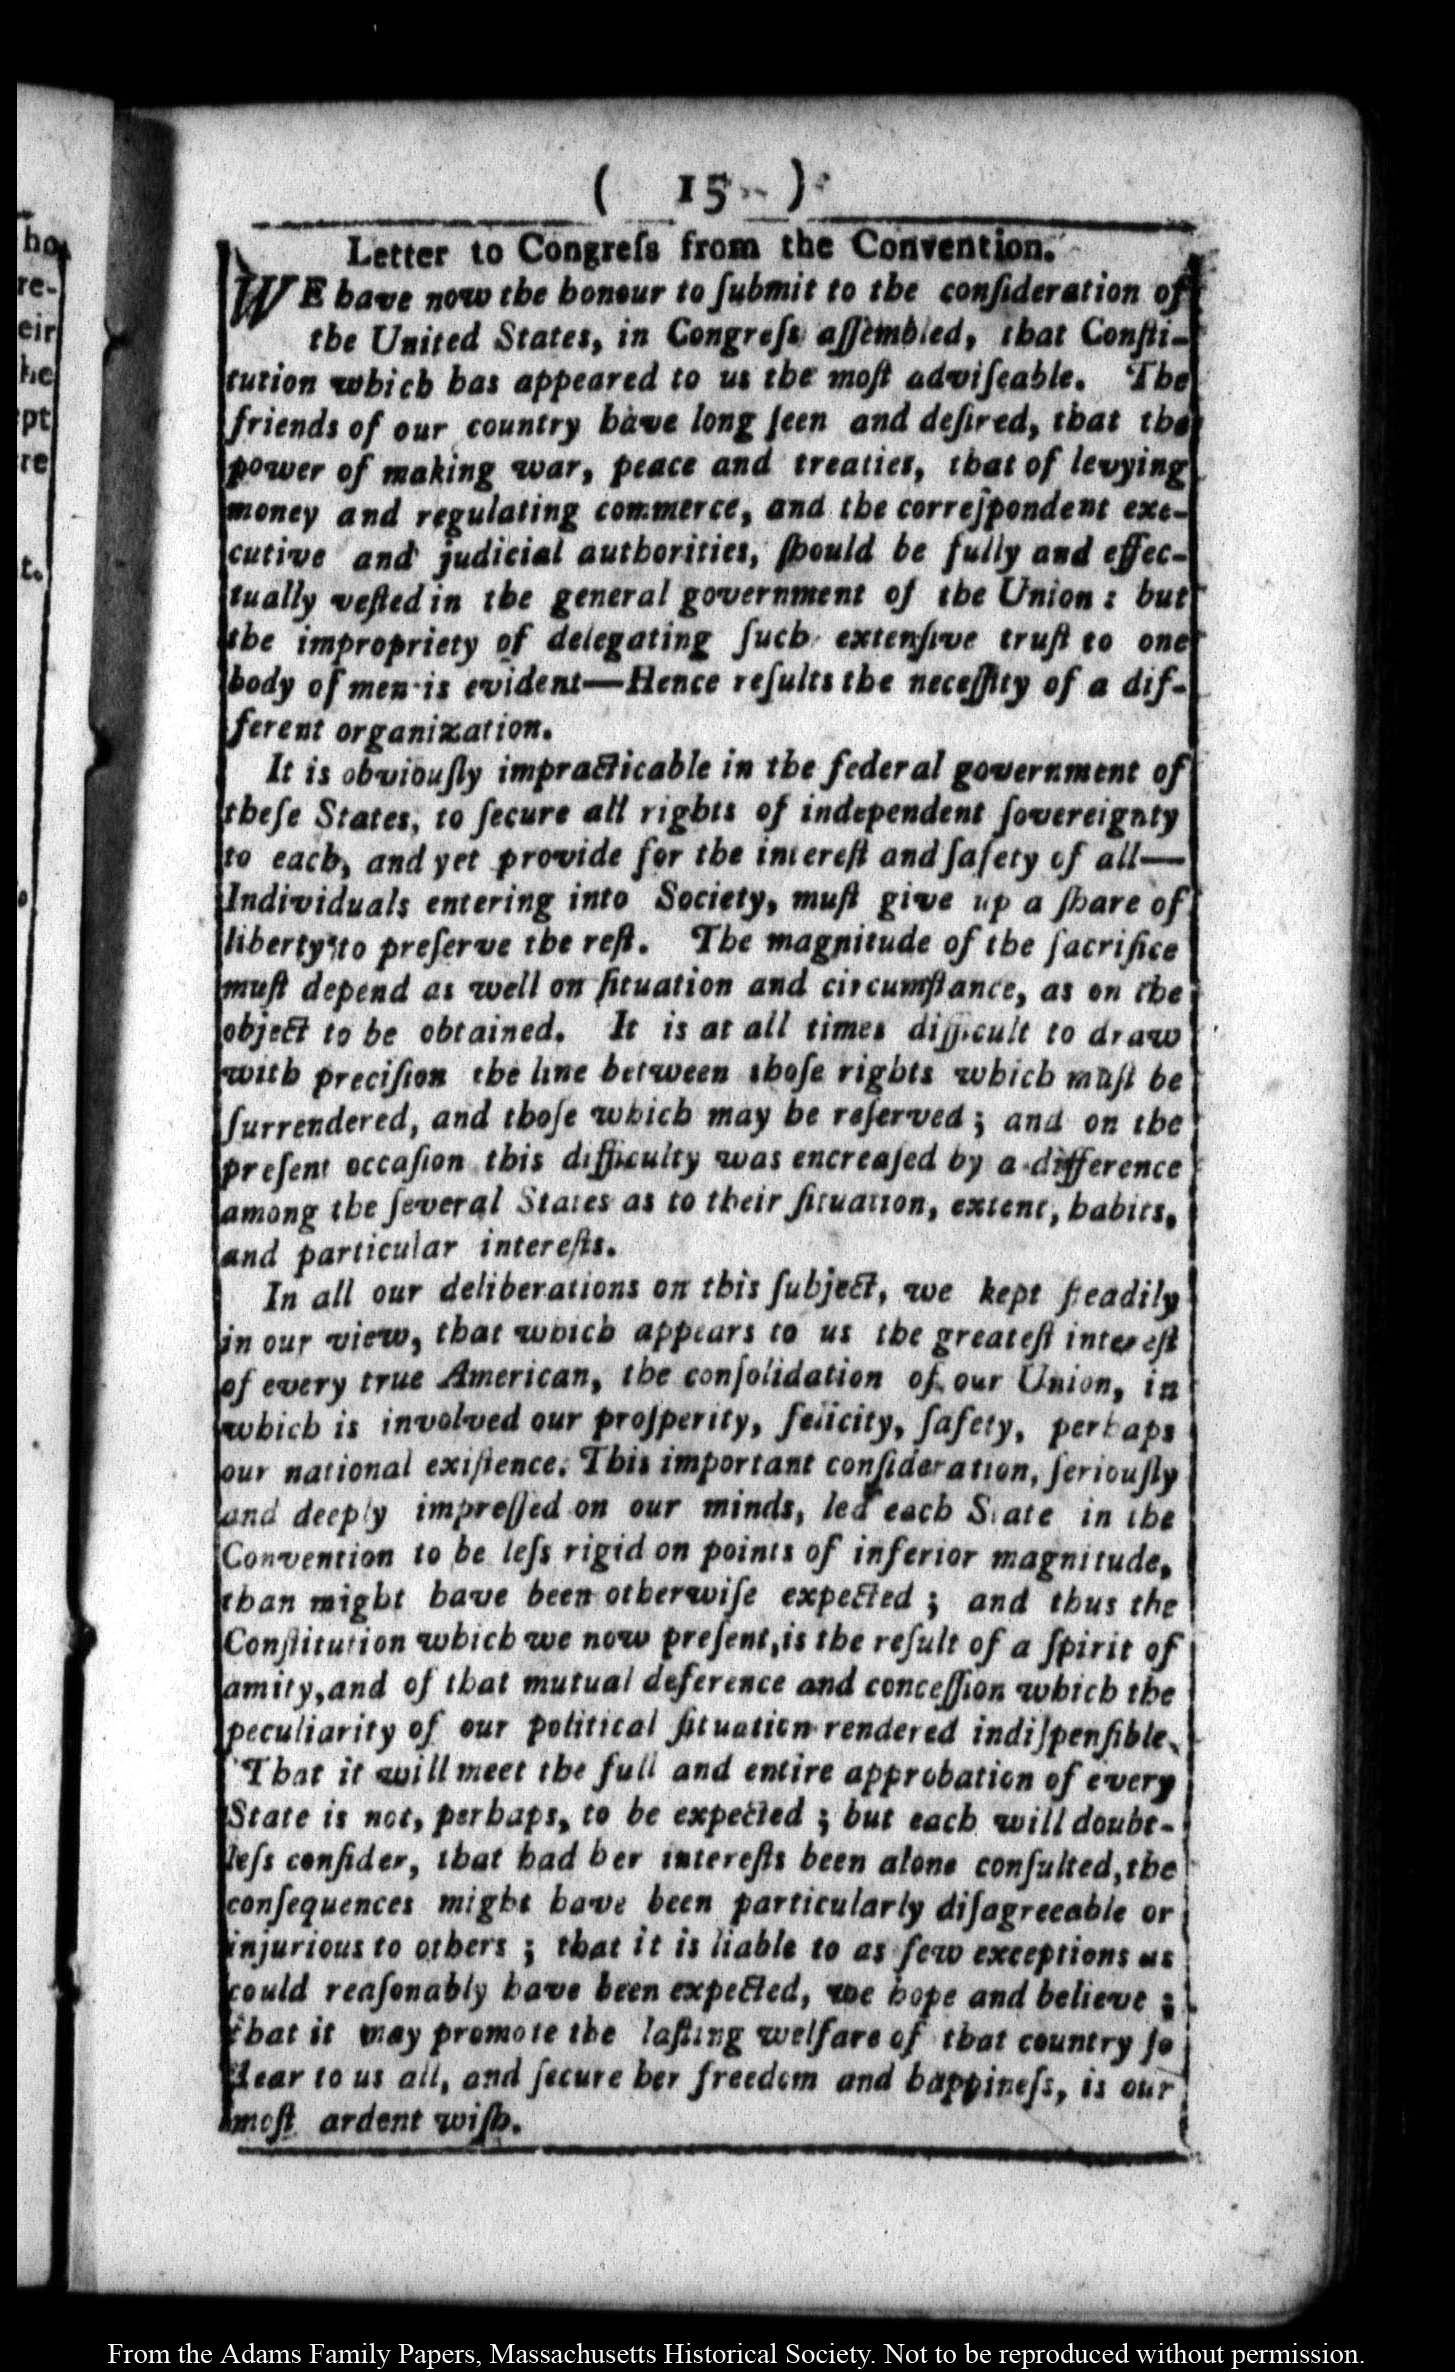 ( 15 )
Letter to Congreſs from the Convention.
WE have now the honour to ſubmit to the conſideration of
the United States, in Congreſs aſſembled, that Conſti-
tution which has appeared to us the moſt adviſeable. The
friends of our country have long ſeen and deſired, that the
power of making war, peace and treaties, that of levying
money and regulating commerce, and the correſpondent exe-
cutive and judicial authorities, ſhould be fully and effec-
tually veſted in the general government of the Union : but
the impropriety of delegating ſuch extenſive truſt to one
body of men is evident—Hence reſults the neceſſity of a dif-
ferent organization.
It is obviouſly impracticable in the federal government of
theſe States, to ſecure all rights of independent ſovereignty
to each, and yet provide for the intereſt and ſafety of all—
Individuals entering into Society, muſt give up a ſhare of
liberty to preſerve the reſt. The magnitude of the ſacrifice
muſt depend as well on ſituation and circumſtance, as on the
object to be obtained. It is at all times difficult to draw
with preciſion the line between thoſe rights which muſt be
ſurrendered, and thoſe which may be reſerved ; and on the
preſent occaſion this difficulty was encreaſed by a difference
among the ſeveral States as to their ſituation, extent, habits,
and particular intereſts.
In all our deliberations on this ſubject, we kept ſteadily
in our view, that which appears to us the greateſt intereſt
of every true American, the conſolidation of our Union, in
which is involved our proſperity, felicity, ſafety, perhaps
our national exiſtence. This important conſideration, ſeriouſly
and deeply impreſſed on our minds, led each State in the
Convention to be leſs rigid on points of inferior magnitude,
than might have been otherwiſe expected ; and thus the
Conſtitution which we now preſent, is the reſult of a ſpirit of
amity, and of that mutual deference and conceſſion which the
peculiarity of our political ſituation rendered indiſpenſible.
That it will meet the full and entire approbation of every
State is not, perhaps, to be expected ; but each will doubt-
leſs conſider, that had her intereſts been alone conſulted, the
conſequences might have been particularly diſagreeable or
injurious to others ; that it is liable to as few exceptions as
could reaſonably have been expected, we hope and believe ;
that it may promote the laſting welfare of that country ſo
dear to us all, and ſecure her freedom and happineſs, is our
moſt ardent wiſh.
ho
re-
eir
he
pt
re
t.
From the Adams Family Papers, Massachusetts Historical Society. Not to be reproduced without permission.